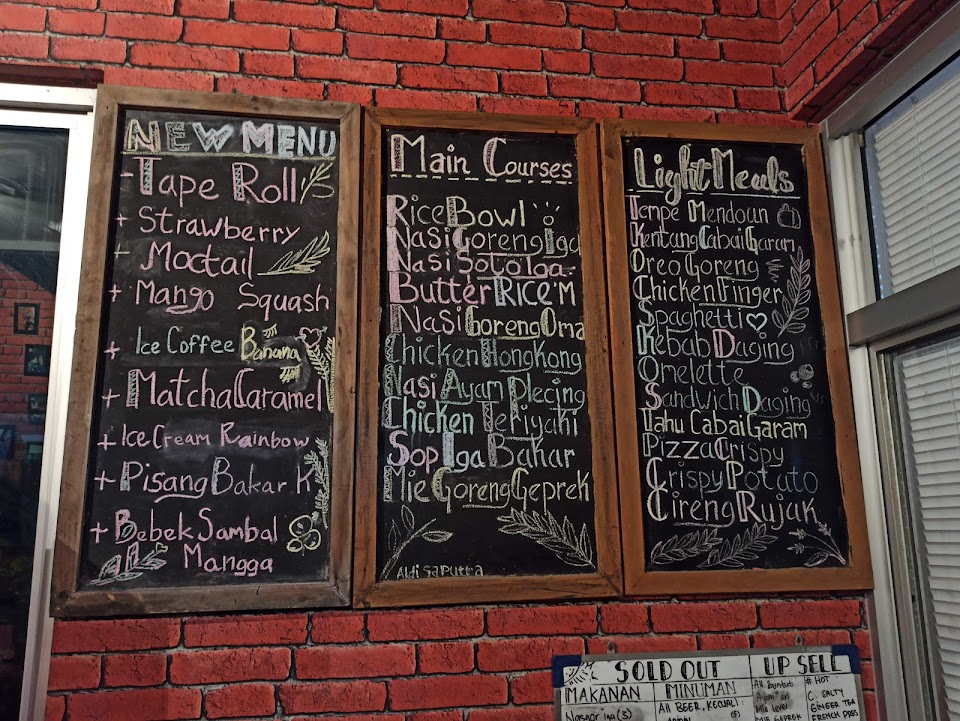 NEW MENU
- Tape Roll
+ Strawberry
+ Moctail
+ Mango Squash
+ Ice Coffee Banana
+ Matcha Caramel
+ Ice Cream Rainbow
+ Pisang Bakar K
+ Bebek Sambal
Mangga
Main Courses
Rice Bowl
Nasi Goreng Iga
Nasi Soto Iga
Butter Rice M
Nasi Goreng Oma
Chicken HongKong
Nasi Ayam Plecing
Chicken Teriyaki
Sop Iga Bakar
Mie Goreng Geprek
Aldi Saputra
Light Meals
Tempe Mendoan
Kentang Cabai Garam
Oreo Goreng
Chicken Finger
Spaghetti
Kebab Daging
Omelette
Sandwich Daging
Tahu Cabai Garam
Pizza Crispy
Crispy Potato
Cireng Rujak
SOLD OUT
UP SELL
MAKANAN
MINUMAN
ALL BEER, KECUALI
# HOT
C. SALTY
GINGER TEA
FRENCH PRES
MIE GEPREK